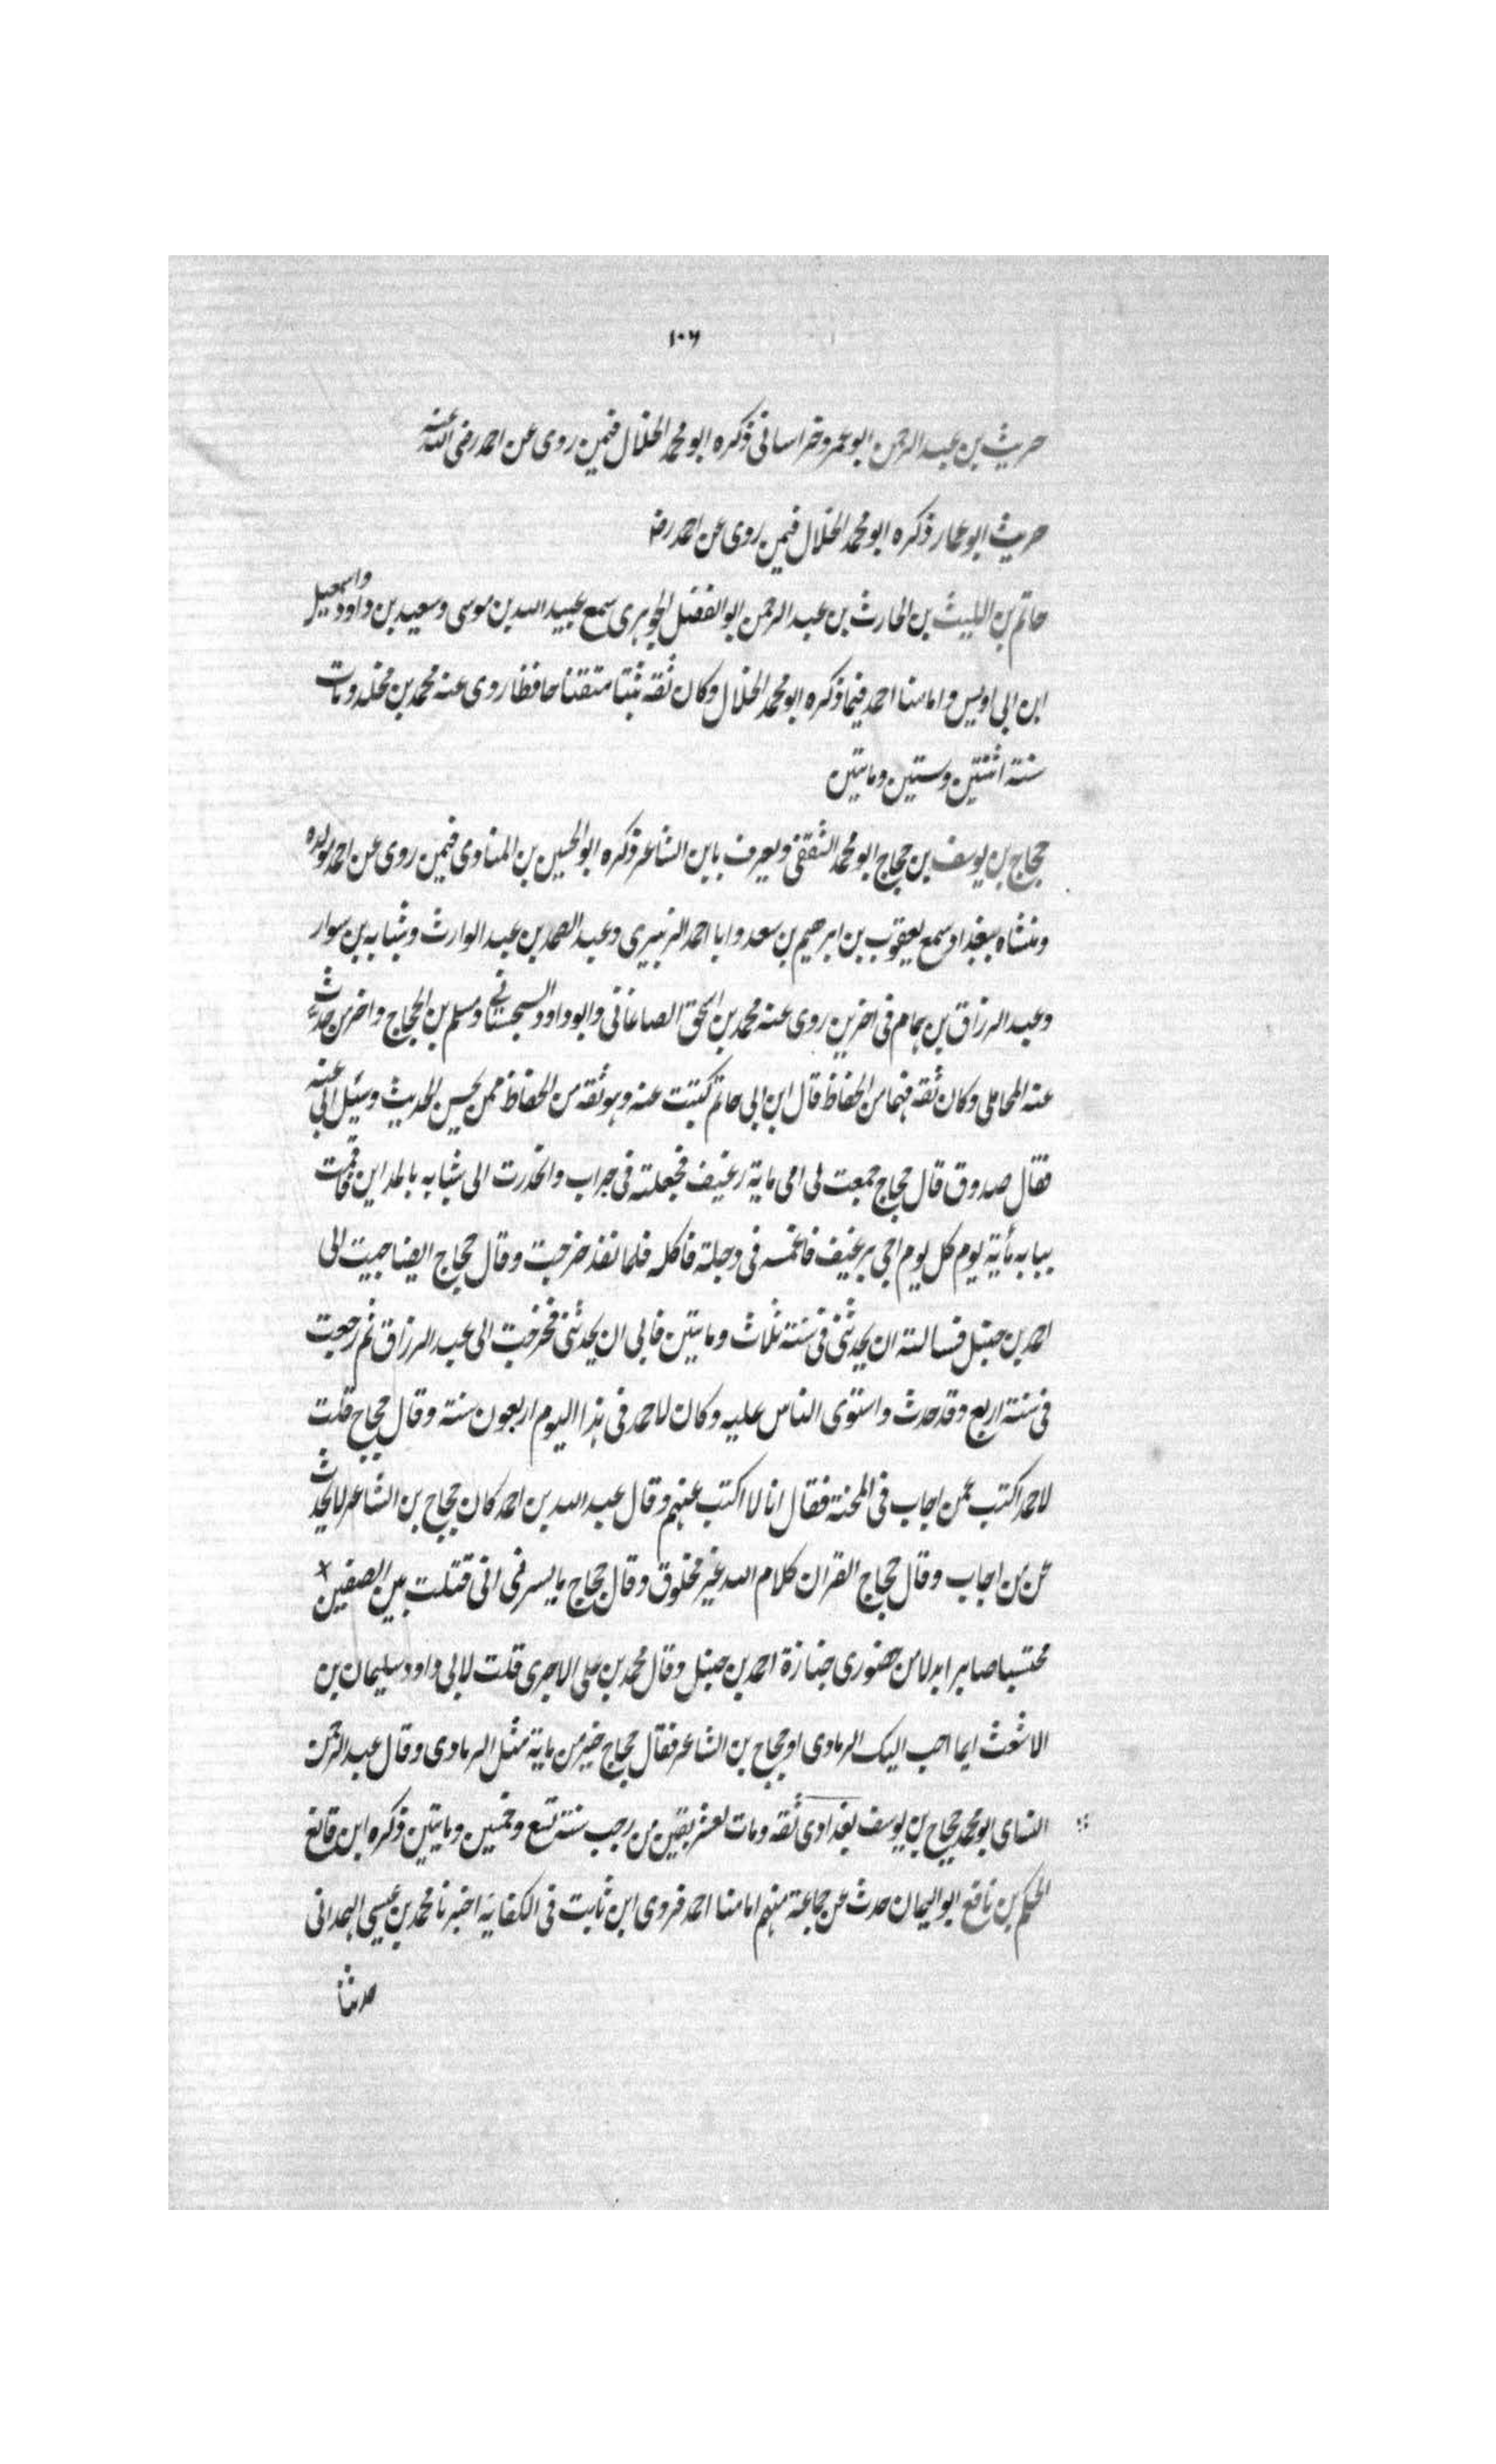 ١٠٦
حريث بن عبد الرحمن ابو عمرو خراسانى ذكره ابو محمد الخلال فيمن روى عن احمد رضى الله عنه
حريث ابو عمار ذكره ابو محمد الخلال فيمن روى عن احمد رضـ
حاتم بن الليث بن الحارث بن عبد الرحمن ابو الفضل الجوهرى سمع عبيد الله بن موسى وسعيد بن داود واسمعيل
ابن ابى اويس وامامنا احمد فيما ذكره ابو محمد الخلال وكان ثقه ثبتا متقنا حافظا روى عنه محمد بن مخلد ومات
سنة اثنتين وستين ومايتين
حجاج بن يوسف بن حجاج ابو محمد الثقفى ويعرف بابن الشاعر ذكره ابو الحسين بن المناوى فيمن روى عن احمد مولده
ومنشاه ببغداد وسمع يعقوب بن ابرهيم بن سعد وابا احمد الزبيرى وعبد الصمد بن عبد الوارث وشبابه بن سوار
وعبد الرزاق بن همام فى اخرين روى عنه محمد بن اسحق الصاغانى وابو داود السجستانى ومسلم بن الحجاج واخر من حدث
عنه المحاملى وكان ثقه فهما من الحفاظ قال ابن ابى حاتم كتبت عنه وهو ثقه من الحفاظ ممن يحسن الحديث وسئل ابى عنه
فقال صدوق قال حجاج جمعت لى امى ماية رغيف فجعلته فى جراب وانحدرت الى شبابه بالمداين فاقمت
ببابه مأية يوم كل يوم اجى برغيف فاغمسه فى دجلة فاكله فلما نفذ خرجت وقال حجاج ايضا جيت الى
احمد بن حنبل فسالته ان يحدثنى فى سنة ثلاث ومايتين فابى ان يحدثنى فخرجت الى عبد الرزاق ثم رجعت
فى سنة اربع وقد حدث واستوى الناس عليه وكان لاحمد فى هذا اليوم اربعون سنة وقال حجاج قلت
لاحمد اكتب عمن اجاب فى المحنة فقال انا لا اكتب عنهم وقال عبد الله بن احمد كان حجاج بن الشاعر لا يحدث
عن من اجاب وقال حجاج القران كلام الله غير مخلوق وقال حجاج ما يسرنى انى قتلت بين الصفين
محتسبا صابرا بدلا من حضورى جنازة احمد بن حنبل وقال محمد بن على الاجرى قلت لابى داود سليمان بن
الاشعث ايما احب اليك الرمادى او حجاج بن الشاعر فقال حجاج خير من ماية مثل الرمادى وقال عبد الرحمن
النساى ابو محمد حجاج بن يوسف بغدادى ثقه ومات لعشر بقين من رجب سنة تسع وخمسين ومايتين ذكره ابن قانع
الحكم بن نافع ابو اليمان حدث عن جماعة منهم امامنا احمد فروى ابن ثابت فى الكفاية اخبرنا محمد بن عيسى الهمدانى
حدثنا